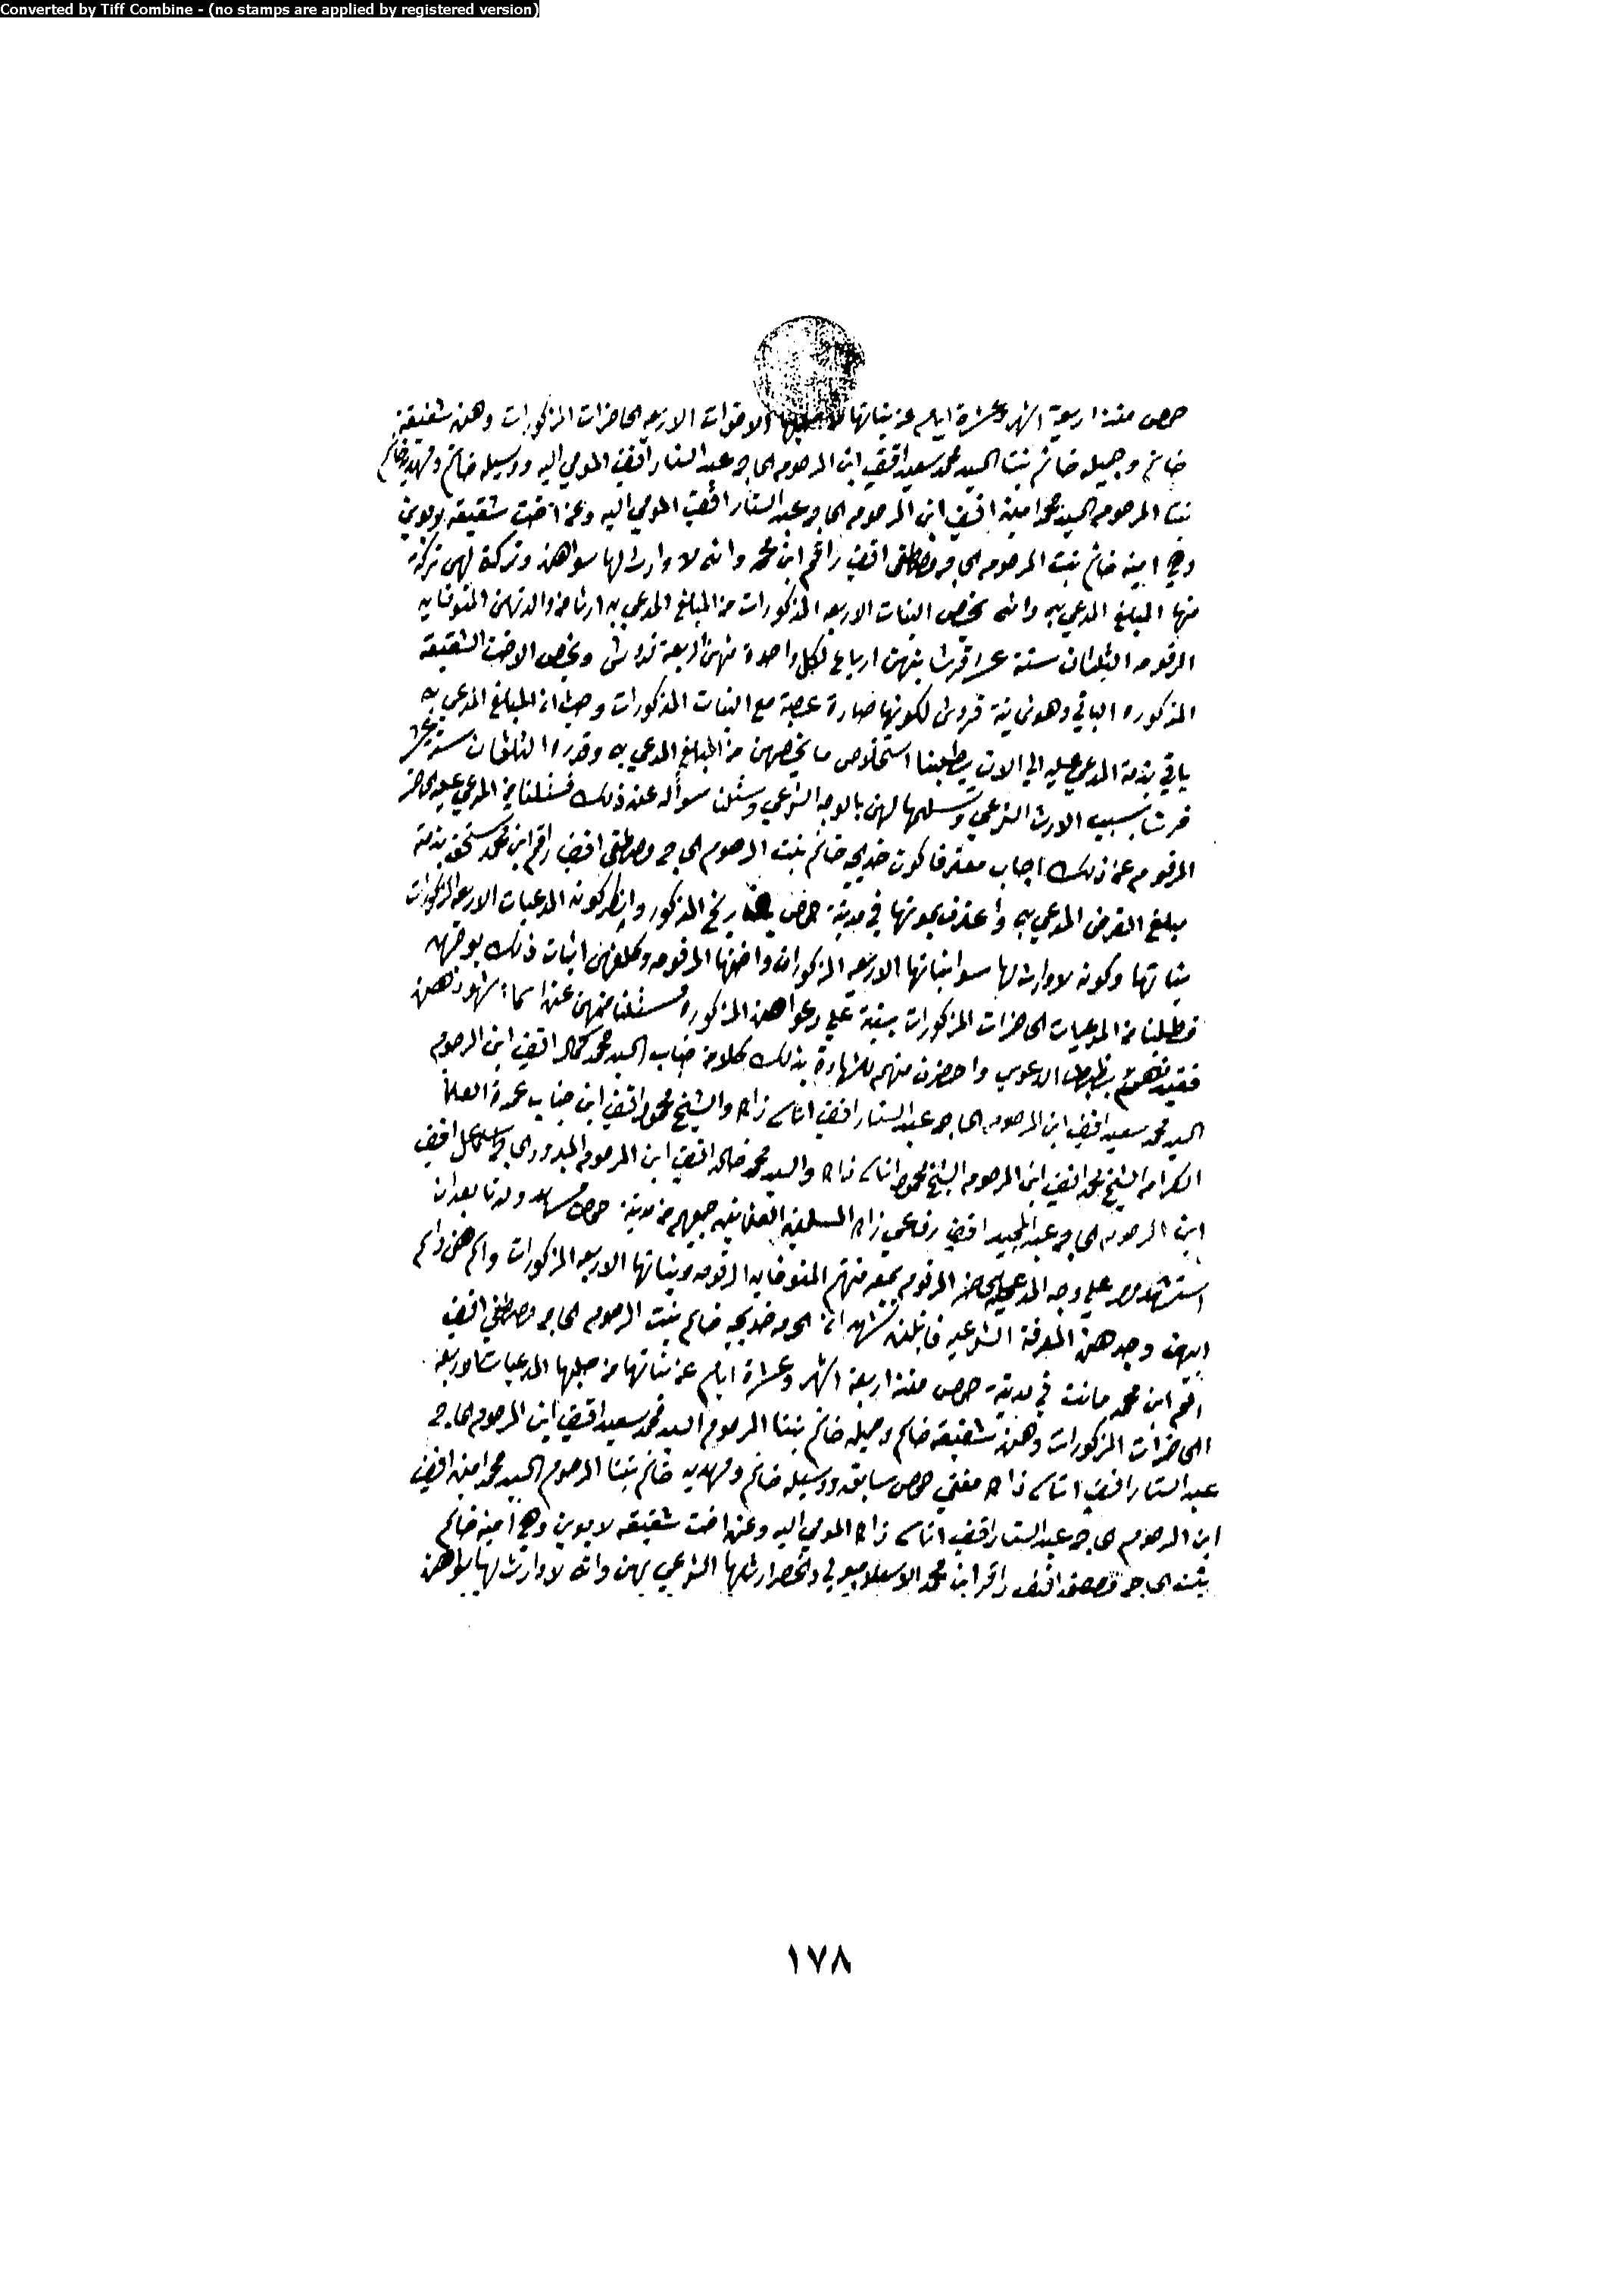 Converted by Tiff Combine - (no stamps are applied by registered version)
حمص منذ اربعة اشهر وعشرة ايام عن بناتها الاخوات الاربعه الحاضرات المذكورات وهن شفيقه
خانم وجميله خانم بنتا السيد محمد سعيد افندي ابن المرحوم الحاج عبد الستار افندي المومى اليه ووسيله خانم ومهديه خانم
بنتا المرحوم السيد محمد امين افندي ابن المرحوم الحاج عبد الستار افندي المومي اليه وعن اخت شقيقه لابوين
وهي امينه خانم بنت المرحوم الحاج مصطفى افندي راقم ابن محمد وانه لا وارث لها سواهن وتركة لهن تركة
منها المبلغ المدعي به وانه يخص البنات الاربعه المذكورات من المبلغ المدعي به ارثا من والدتهن المتوفايه
المرقومه الثلثان ستة عشر قرشا بينهن ارباع لكل واحدة منهن اربعة قروش ويخص الاخت الشقيقة
المذكوره الباقي وهو ثمانية قروش لكونها صارة عصبة مع البنات المذكورات وحيث ان المبلغ المدعي به
باقي بذمة المدعي عليه الي الان يطلبنا استخلاص ما يخصهن من المبلغ المدعي به وقدره الثلثان ستة عشر
قرشا بسبب الارث الشرعي وتسليمها لهن بالوجه الشرعي وسئلن سوأله عن ذلك فسئلنا من المدعي عليه الحاضر
المرقوم عن ذلك اجاب معترفا كون خديجه خانم بنت المرحوم الحاج مصطفى افندي راقم ابن محمد تستحق بذمته
مبلغ القرض المدعي به واعترف بموتها في مدينة حمص بالتاريخ المذكور وانكر كونه المدعيات الاربعه المذكورات
بناتها وكونه لا وارث لها سوا بناتها الاربعه المذكورات واختها المرقومه وكلفهن اثبات ذلك بوجههن
فطلبنا من المدعيات الحاضرات المذكورات بينة علي دعواهن المذكوره وسئلنا منهن عن اسماء شهودهن
بظهر الدعوي واحضرن منهم للشهادة بذلك كلا من جناب السيد محمد كمال افندي ابن المرحوم
السيد محمد سعيد افندي ابن المرحوم الحاج عبد الستار افندي اتاسي زاده والشيخ محمود افندي ابن جناب عمدة العلما
الكرام الشيخ محمد افندي ابن المرحوم الشيخ محمود اتاسي زاده والسيد محمد خالد افندي ابن المرحوم المبرور الحاج اسماعيل افندي
ابن المرحوم الحاج عبد المجيد افندي رفاعي زاده المسلمين العثمانيين جميعهم من مدينة حمص وبعد ان
استشهدوا علي وجه المدعي عليه الحاضر المرقوم بمعرفتهم المتوفايه المرقومه وبناتها الاربعه المذكورات واسمهن واسم
ابيهن وجدهن المعرفة الشرعيه قايلين نشهد ان خديجه خانم بنت المرحوم الحاج مصطفي افندي
راقم ابن محمد ماتت في مدينة حمص منذ اربعة اشهر وعشرة ايام عن بناتها من صلبها المدعيات الاربعه
الحاضرات المذكورات وهن شفيقه خانم وجميله خانم بنتا المرحوم السيد محمد سعيد افندي ابن المرحوم الحاج
عبد الستار افندي اتاسي زاده مفتي حمص سابق ووسيله خانم ومهديه خانم بنتا المرحوم السيد محمد امين افندي
ابن المرحوم الحاج عبد الستار افندي اتاسي زاده المومي اليه وعن اخت شقيقه لابوين وهي امينه خانم
بنت الحاج مصطفى افندي راقم ابن محمد الاسلامبولي وانحصار ارثها الشرعي بهن وانه لا وارث لها سواهن
١٧٨